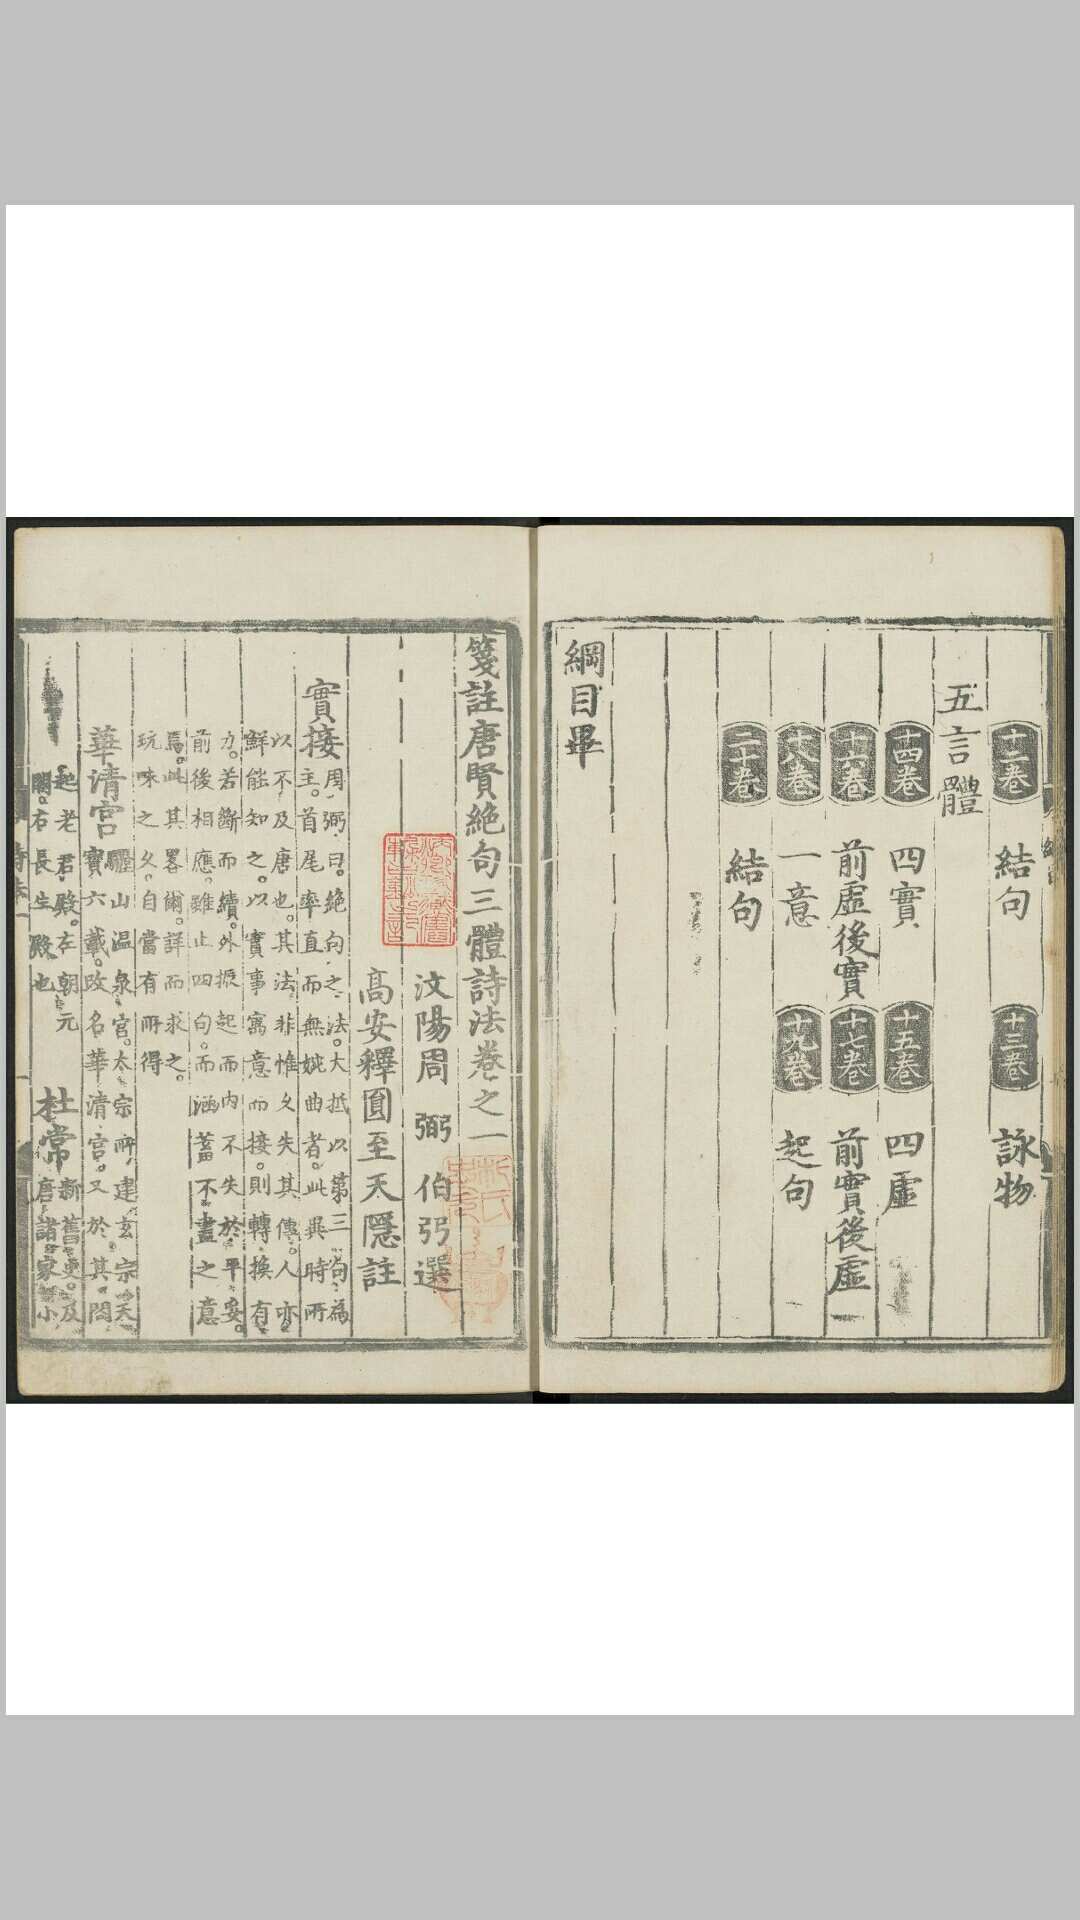 十二卷 結句 十三卷 詠物
五言體
十四卷 四實 十五卷 四虛
十六卷 前虛後實 十七卷 前實後虛
十八卷 一意 十九卷 起句
二十卷 結句
綱目畢
箋註唐賢絕句三體詩法卷之一
汶陽周 弼 伯弜選
高安釋圎至天隱註
實接
周弼曰。絕句之法。大抵以第三句為
主。首尾率直而無婉曲者。此異時所
以不及唐也。其法非惟久失其傳。人亦
鮮能知之。以實事寓意而接。則轉換有
力。若斷而續。外振起而內不失於平妥。
前後相應。雖止四句。而涵蓄不盡之意
焉。此其畧爾。詳而求之。
玩味之久。自當有所得
華清宮
驪山温泉宮。太宗所建玄宗天
寶六載。改名華清宮。又於其間
起老君殿。左朝元
閣。右長生殿也
杜常
新舊史。及
唐諸家小